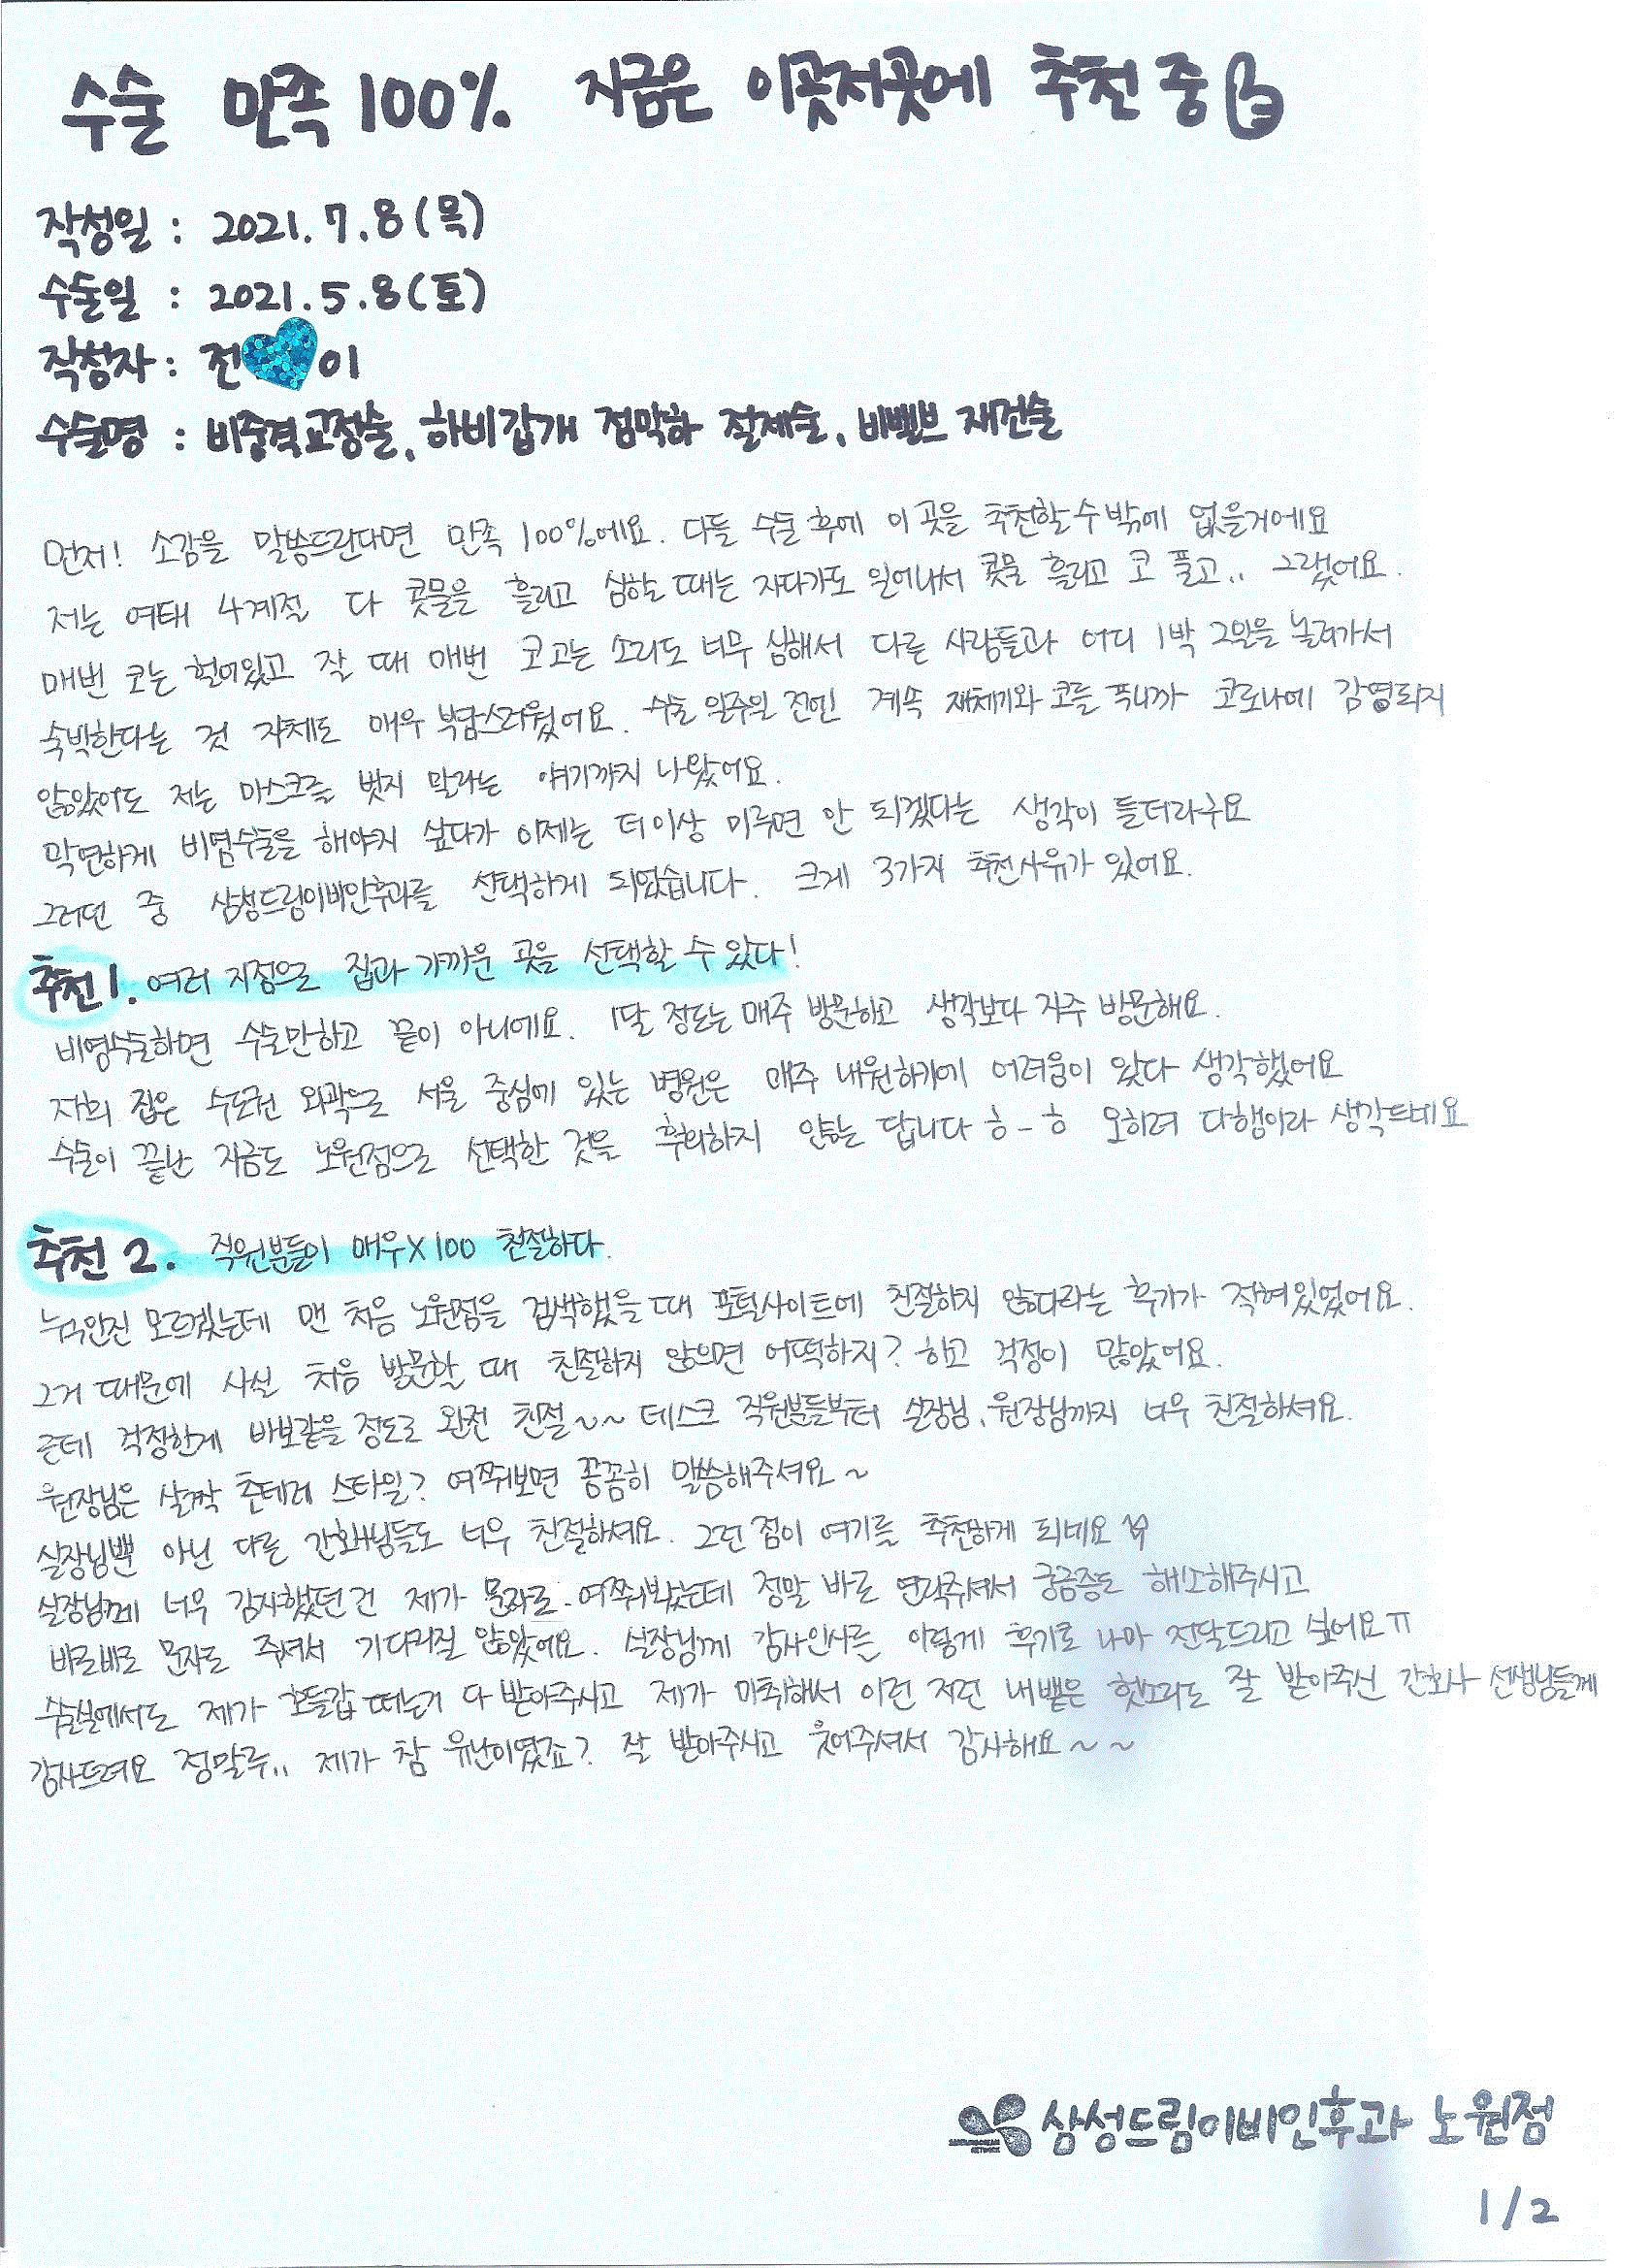 수술 만족 100% 지금은 이곳저곳에 추천 중
작성일 : 2021.7.8(목)
수술일 : 2021.5.8(토)
작성자 : 전 이
수술명 : 비중격교정술, 하비갑개 점막하 절제술, 비밸브 재건술
먼저! 소감을 말씀드린다면 만족 100%에요. 다들 수술 후에 이 곳을 추천할 수 밖에 없을거에요
저는 여태 4계절 다 콧물을 흘리고 심할 때는 자다가도 일어나서 콧물 흘리고 코 풀고.. 그랬어요.
매번 코는 헐어있고 잘 때 매번 코고는 소리도 너무 심해서 다른 사람들과 어디 1박 2일을 놀러가서
숙박한다는 것 자체도 매우 부담스러웠어요. 수술 일주일 전엔 계속 재채기와 코를 푸니까 코로나에 감염되지
않았어도 저는 마스크를 벗지 말라는 얘기까지 나왔어요.
막연하게 비염수술을 해야지 싶다가 이제는 더이상 미루면 안 되겠다는 생각이 들더라구요
그러던 중 삼성드림이비인후과를 선택하게 되었습니다. 크게 3가지 추천사유가 있어요.
추천 1. 여러 지점으로 집과 가까운 곳을 선택할 수 있다!
비염수술하면 수술만하고 끝이 아니에요. 1달 정도는 매주 방문하고 생각보다 자주 방문해요.
저희 집은 수도권 외곽으로 서울 중심에 있는 병원은 매주 내원하기에 어려움이 있다 생각했어요
수술이 끝난 지금도 노원점으로 선택한 것을 후회하지 않는 답니다 ㅎ-ㅎ 오히려 다행이라 생각드네요
추천 2. 직원분들이 매우X100 친절하다.
누구인진 모르겠는데 맨 처음 노원점을 검색했을 때 포털사이트에 친절하지 않다라는 후기가 적혀있었어요.
그거 때문에 사실 처음 방문할 때 친절하지 않으면 어떡하지? 하고 걱정이 많았어요.
근데 걱정한게 바보같을 정도로 완전 친절~~ 데스크 직원분들부터 실장님, 원장님까지 너무 친절하셔요.
원장님은 살짝 츤데레 스타일? 여쭤보면 꼼꼼히 말씀해주셔요~
실장님뿐 아닌 다른 간호사님들도 너무 친절하셔요. 그런 점이 여기를 추천하게 되네요
실장님께 너무 감사했던 건 제가 문자로 여쭤봤는데 정말 바로 연락주셔서 궁금증도 해소해주시고
바로바로 문자로 주셔서 기다리질 않았어요. 실장님께 감사인사를 이렇게 후기로 나마 전달드리고 싶어요 ㅠ
수술실에서도 제가 호들갑 떠는거 다 받아주시고 제가 마취해서 이런 저런 내뱉은 헛소리도 잘 받아주신 간호사 선생님들께
감사드려요 정말루.. 제가 참 유난이였죠? 잘 받아주시고 웃어주셔서 감사해요~~
삼성드림이비인후과 노원점
1/2